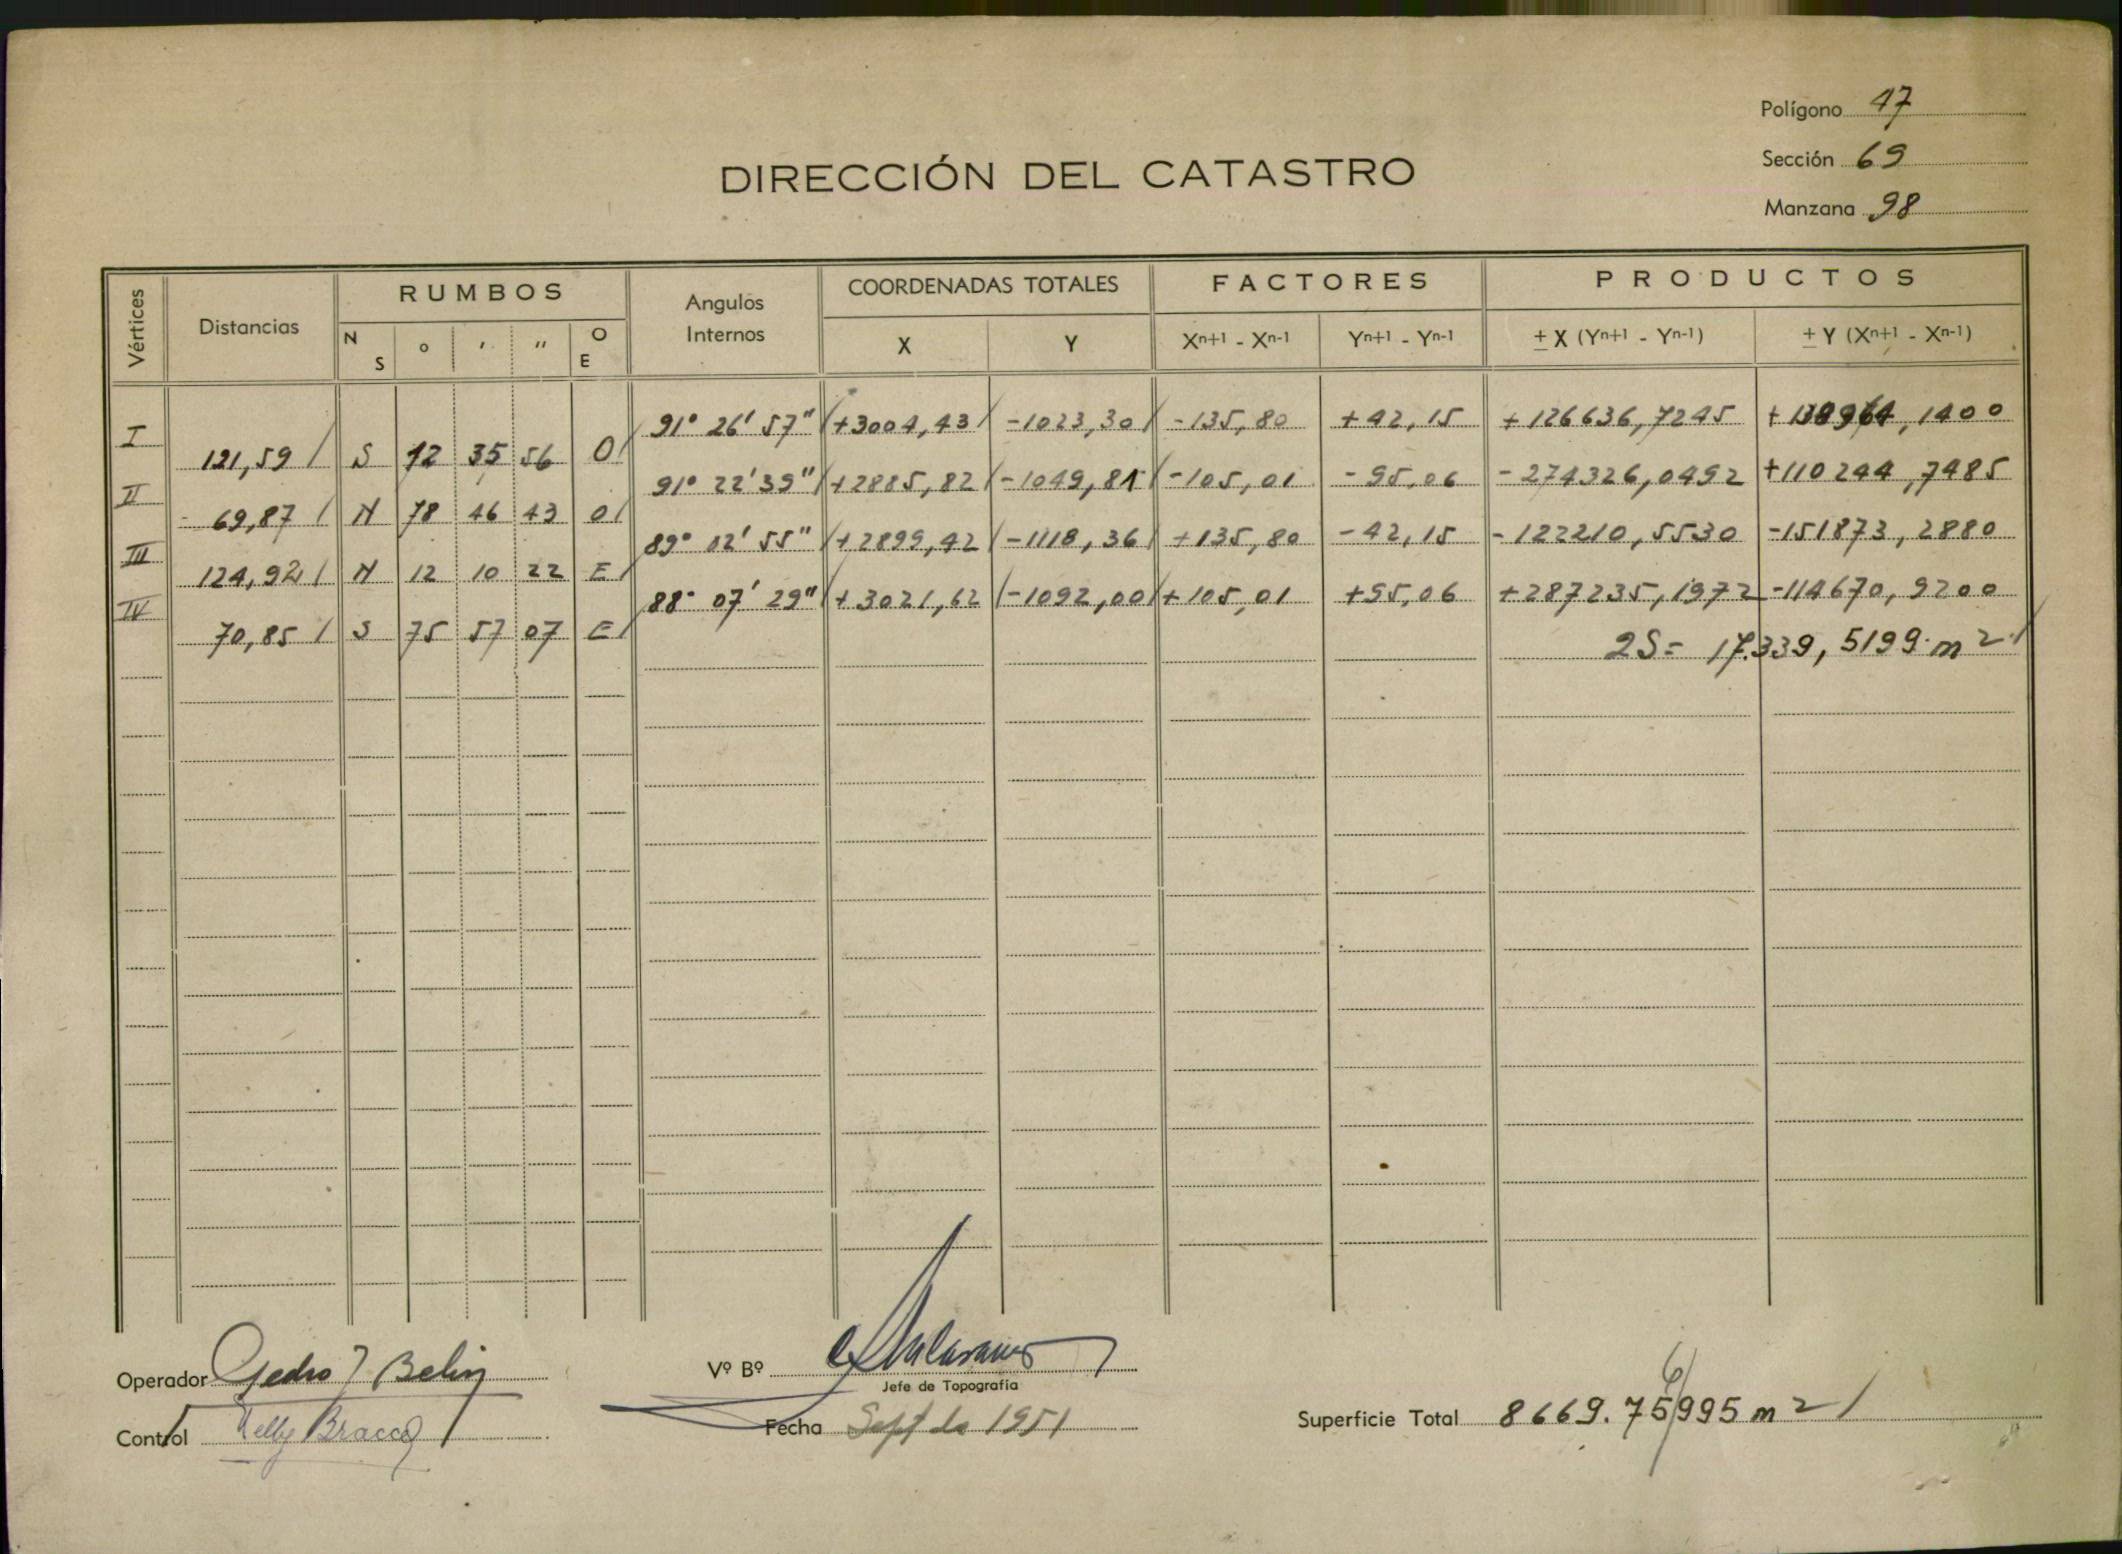 Polígono 47
Sección 69
Manzana 98
DIRECCIÓN DEL CATASTRO
Vértices Distancias RUMBOS Angulos Internos COORDENADAS TOTALES FACTORES PRODUCTOS
N S ° ' " O E X Y Xn+1 - Xn-1 Yn+1 - Yn-1 ± X (Yn+1 - Yn-1) ± Y (Xn+1 - Xn-1)
I 91° 26' 57" +3004,43 -1023,30 -135,80 +42,15 +126636,7245 +138964,1400
121,59 S 12 35 56 O
II 91° 22' 39" +2885,82 -1049,81 -105,01 -95,06 -274326,0492 +110244,7485
69,87 N 78 46 43 O
III 89° 02' 55" +2899,42 -1118,36 +135,80 -42,15 -122210,5530 -151873,2880
124,92 N 12 10 22 E
IV 88° 07' 29" +3021,62 -1092,00 +105,01 +95,06 +287235,1972 -114670,9200
70,85 S 75 57 07 E
2S = 17.339,5199 m2
Operador Pedro J Belin
Vº Bº
Jefe de Topografía
Control Nelly Bracco
Fecha Sept de 1951
Superficie Total 8669.75995 m2
6